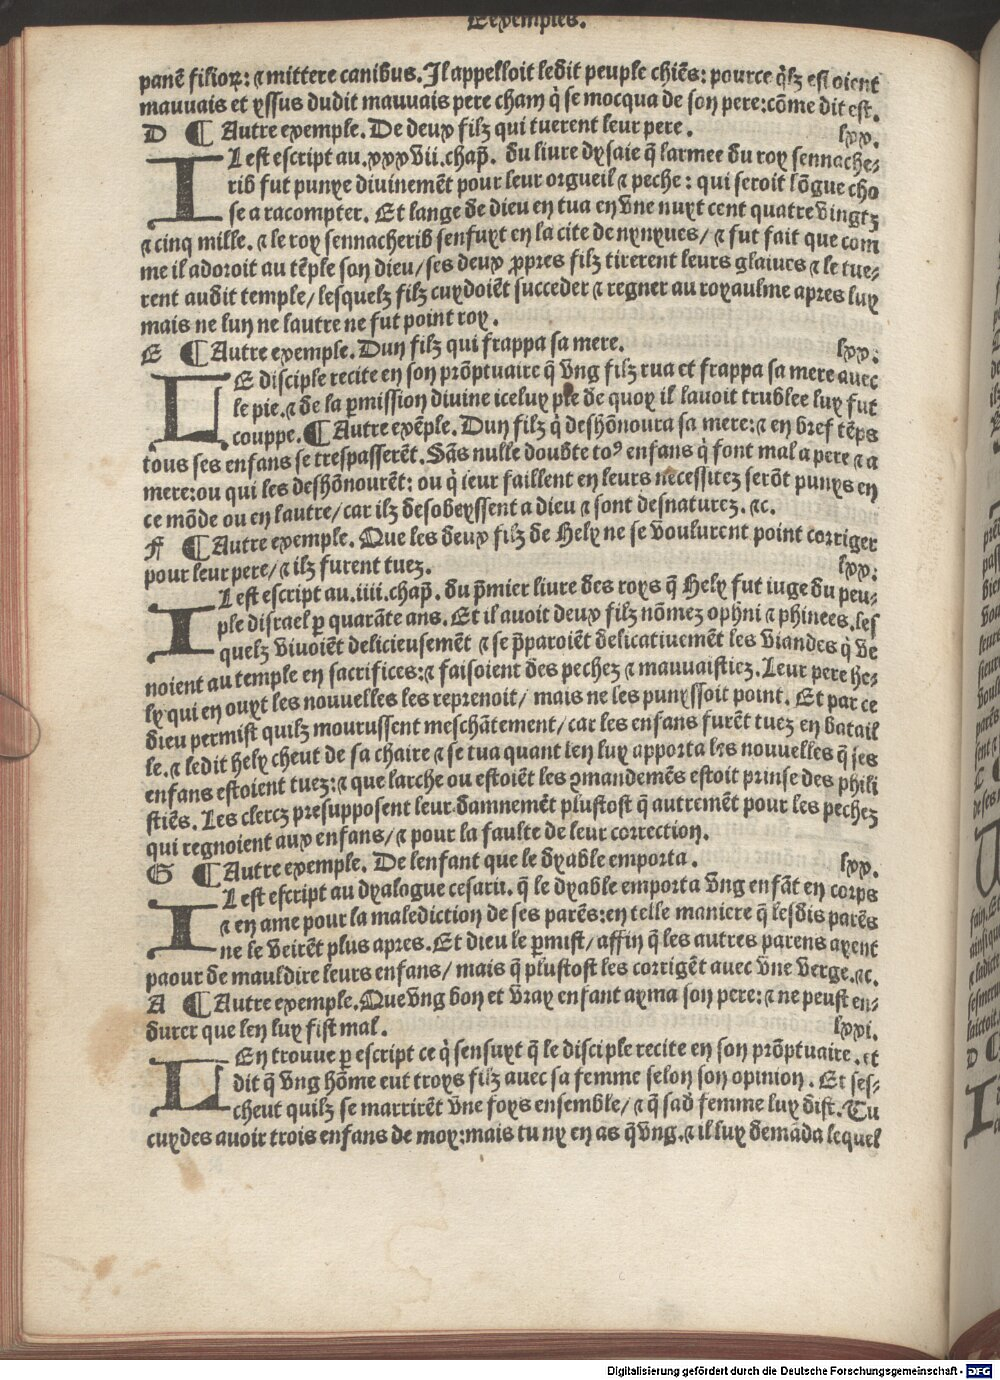 Exemples.
panē filioꝝ: ⁊ mittere canibus. Il appelloit ledit peuple chiēs: pource q̇lz estoient
mauuais et yssus dudit mauuais pere cham q̇ se mocqua de son pere: cōme dit est.
D ¶ Autre exemple. De deux filz qui tuerent leur pere. lxx.
IL est escript au .xxxvii. chap̄. du liure dysaie q̄ larmee du roy sennache-
rib fut punye diuinemēt pour leur orgueil ⁊ peche: qui seroit lōgue cho
se a racompter. Et lange de dieu en tua en vne nuyt cent quatre vingtz
⁊ cinq mille. ⁊ le roy sennacherib senfuyt en la cite de nynyues/ ⁊ fut fait que com
me il adoroit au tēple son dieu/ ses deux ꝓpres filz tirerent leurs glaiues ⁊ le tue-
rent audit temple/ lesquelz filz cuydoiēt succeder ⁊ regner au royaulme apres luy
mais ne lun ne lautre ne fut point roy.
E ¶ Autre exemple. Dun filz qui frappa sa mere. lxx.
LE disciple recite en son prōptuaire q̄ vng filz rua et frappa sa mere auec
le pie. ⁊ de la ꝑmission diuine iceluy pie de quoy il lauoit trublee luy fut
couppe. ¶ Autre exēple. Dun filz q̇ deshōnoura sa mere: ⁊ en bref tēps
tous ses enfans se trespasserēt. Sās nulle doubte toꝰ enfans q̇ font mal a pere ⁊ a
mere: ou qui les deshōnourēt: ou q̇ leur faillent en leurs necessitez serōt punys en
ce mōde ou en lautre/ car ilz desobeyssent a dieu ⁊ sont desnaturez. ⁊c.
F ¶ Autre exemple. Que les deux filz de Hely ne se voulurent point corriger
pour leur pere/ ⁊ ilz furent tuez. lxx.
IL est escript au .iiii. chap̄. du p̄mier liure des roys q̄ Hely fut iuge du peu-
ple disrael ꝑ quarāte ans. Et il auoit deux filz nōmez ophni ⁊ phinees. les
quelz viuoiēt delicieusemēt ⁊ se p̄paroiēt delicatiuemēt les viandes q̇ ve
noient au temple en sacrifices: ⁊ faisoient des pechez ⁊ mauuaistiez. Leur pere he-
ly qui en ouyt les nouuelles les reprenoit/ mais ne les punyssoit point. Et par ce
dieu permist quilz mourussent meschātement/ car les enfans furēt tuez en batail
le. ⁊ ledit hely cheut de sa chaire ⁊ se tua quant len luy apporta les nouuelles q̄ ses
enfans estoient tuez: ⁊ que larche ou estoiēt les ꝯmandemēs estoit prinse des phili
stiēs. Les clercz presupposent leur damnemēt plustost q̄ autremēt pour les pechez
qui regnoient aux enfans/ ⁊ pour la faulte de leur correction.
G ¶ Autre exemple. De lenfant que le dyable emporta. lxx.
IL est escript au dyalogue cesarii. q̄ le dyable emporta vng enfāt en corps
⁊ en ame pour la malediction de ses parēs: en telle maniere q̄ lesdis parēs
ne le veirēt plus apres. Et dieu le ꝑmist/ affin q̄ les autres parens ayent
paour de mauldire leurs enfans/ mais q̄ plustost les corrigēt auec vne verge. ⁊c.
A ¶ Autre exemple. Que vng bon et vray enfant ayma son pere: ⁊ ne peust en-
durer que len luy fist mal. lxxi.
LEn trouue ꝑ escript ce q̇ sensuyt q̄ le disciple recite en son prōptuaire. et
dit q̄ vng hōme eut troys filz auec sa femme selon son opinion. Et ses-
cheut quilz se marrirēt vne foys ensemble/ ⁊ q̄ sad femme luy dist. Tu
cuydes auoir trois enfans de moy: mais tu ny en as q̄ vng. ⁊ il luy demāda lequel
Digitalisierung gefördert durch die Deutsche Forschungsgemeinschaft - DFG